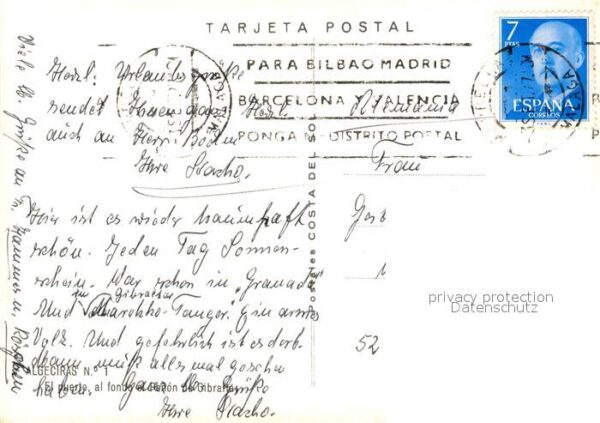 TARJETA POSTAL
7
PTAS
ESPAÑA
CORREOS
PARA BILBAO MADRID
BARCELONA Y VALENCIA
PONGA DISTRITO POSTAL
MALAGA
Herzl. Urlaubsgrüße
sendet Ihnen ganz Herzl.
auch an Herrn
Ihre
Hier ist es wieder traumhaft
schön. Jeden Tag Sonnen-
schein. War schon in "Granada"
in Gibraltar
Und Marokko-Tanger. Ein armes
Volk. Und gefährlich ist es dort
dann muß alles mal gesehen
haben. Ganz Grüße
Ihre
Viele Grüße an
Frau
52
Postales COSTA DEL SOL
ALGECIRAS N.º 1
El puerto, al fondo el Peñón de Gibraltar
privacy protection
Datenschutz